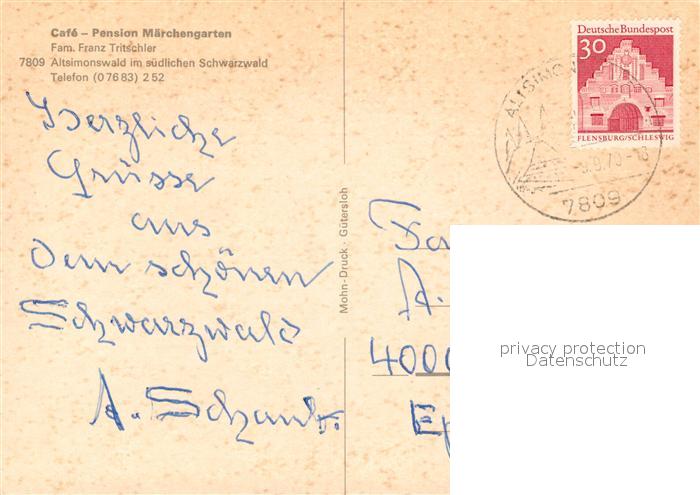 Café – Pension Märchengarten
Fam. Franz Tritschler
7809 Altsimonswald im südlichen Schwarzwald
Telefon (0 76 83) 2 52
Herzliche
Grüsse
aus
dem schönen
Schwarzwald
A.
Mohn-Druck · Gütersloh
Deutsche Bundespost
30
FLENSBURG/SCHLESWIG
7809
A.
4000
privacy protection
Datenschutz